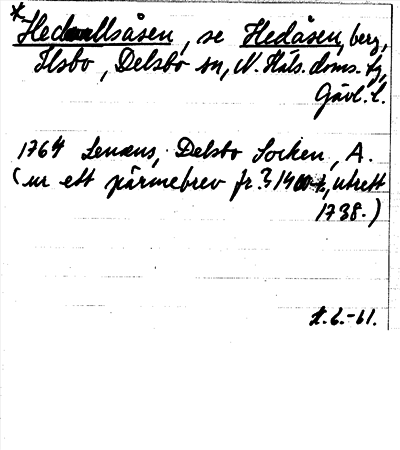 *Hedvallsåsen, se Hedåsen, berg,
Ilsbo, Delsbo sn, N. Häls. doms. fg,
Gävl. l.
1764 Lenæus, Delsbo Socken, A.
(ur ett pärmebrev fr. 1400-t, utrett
1738.)
H.G.-61.